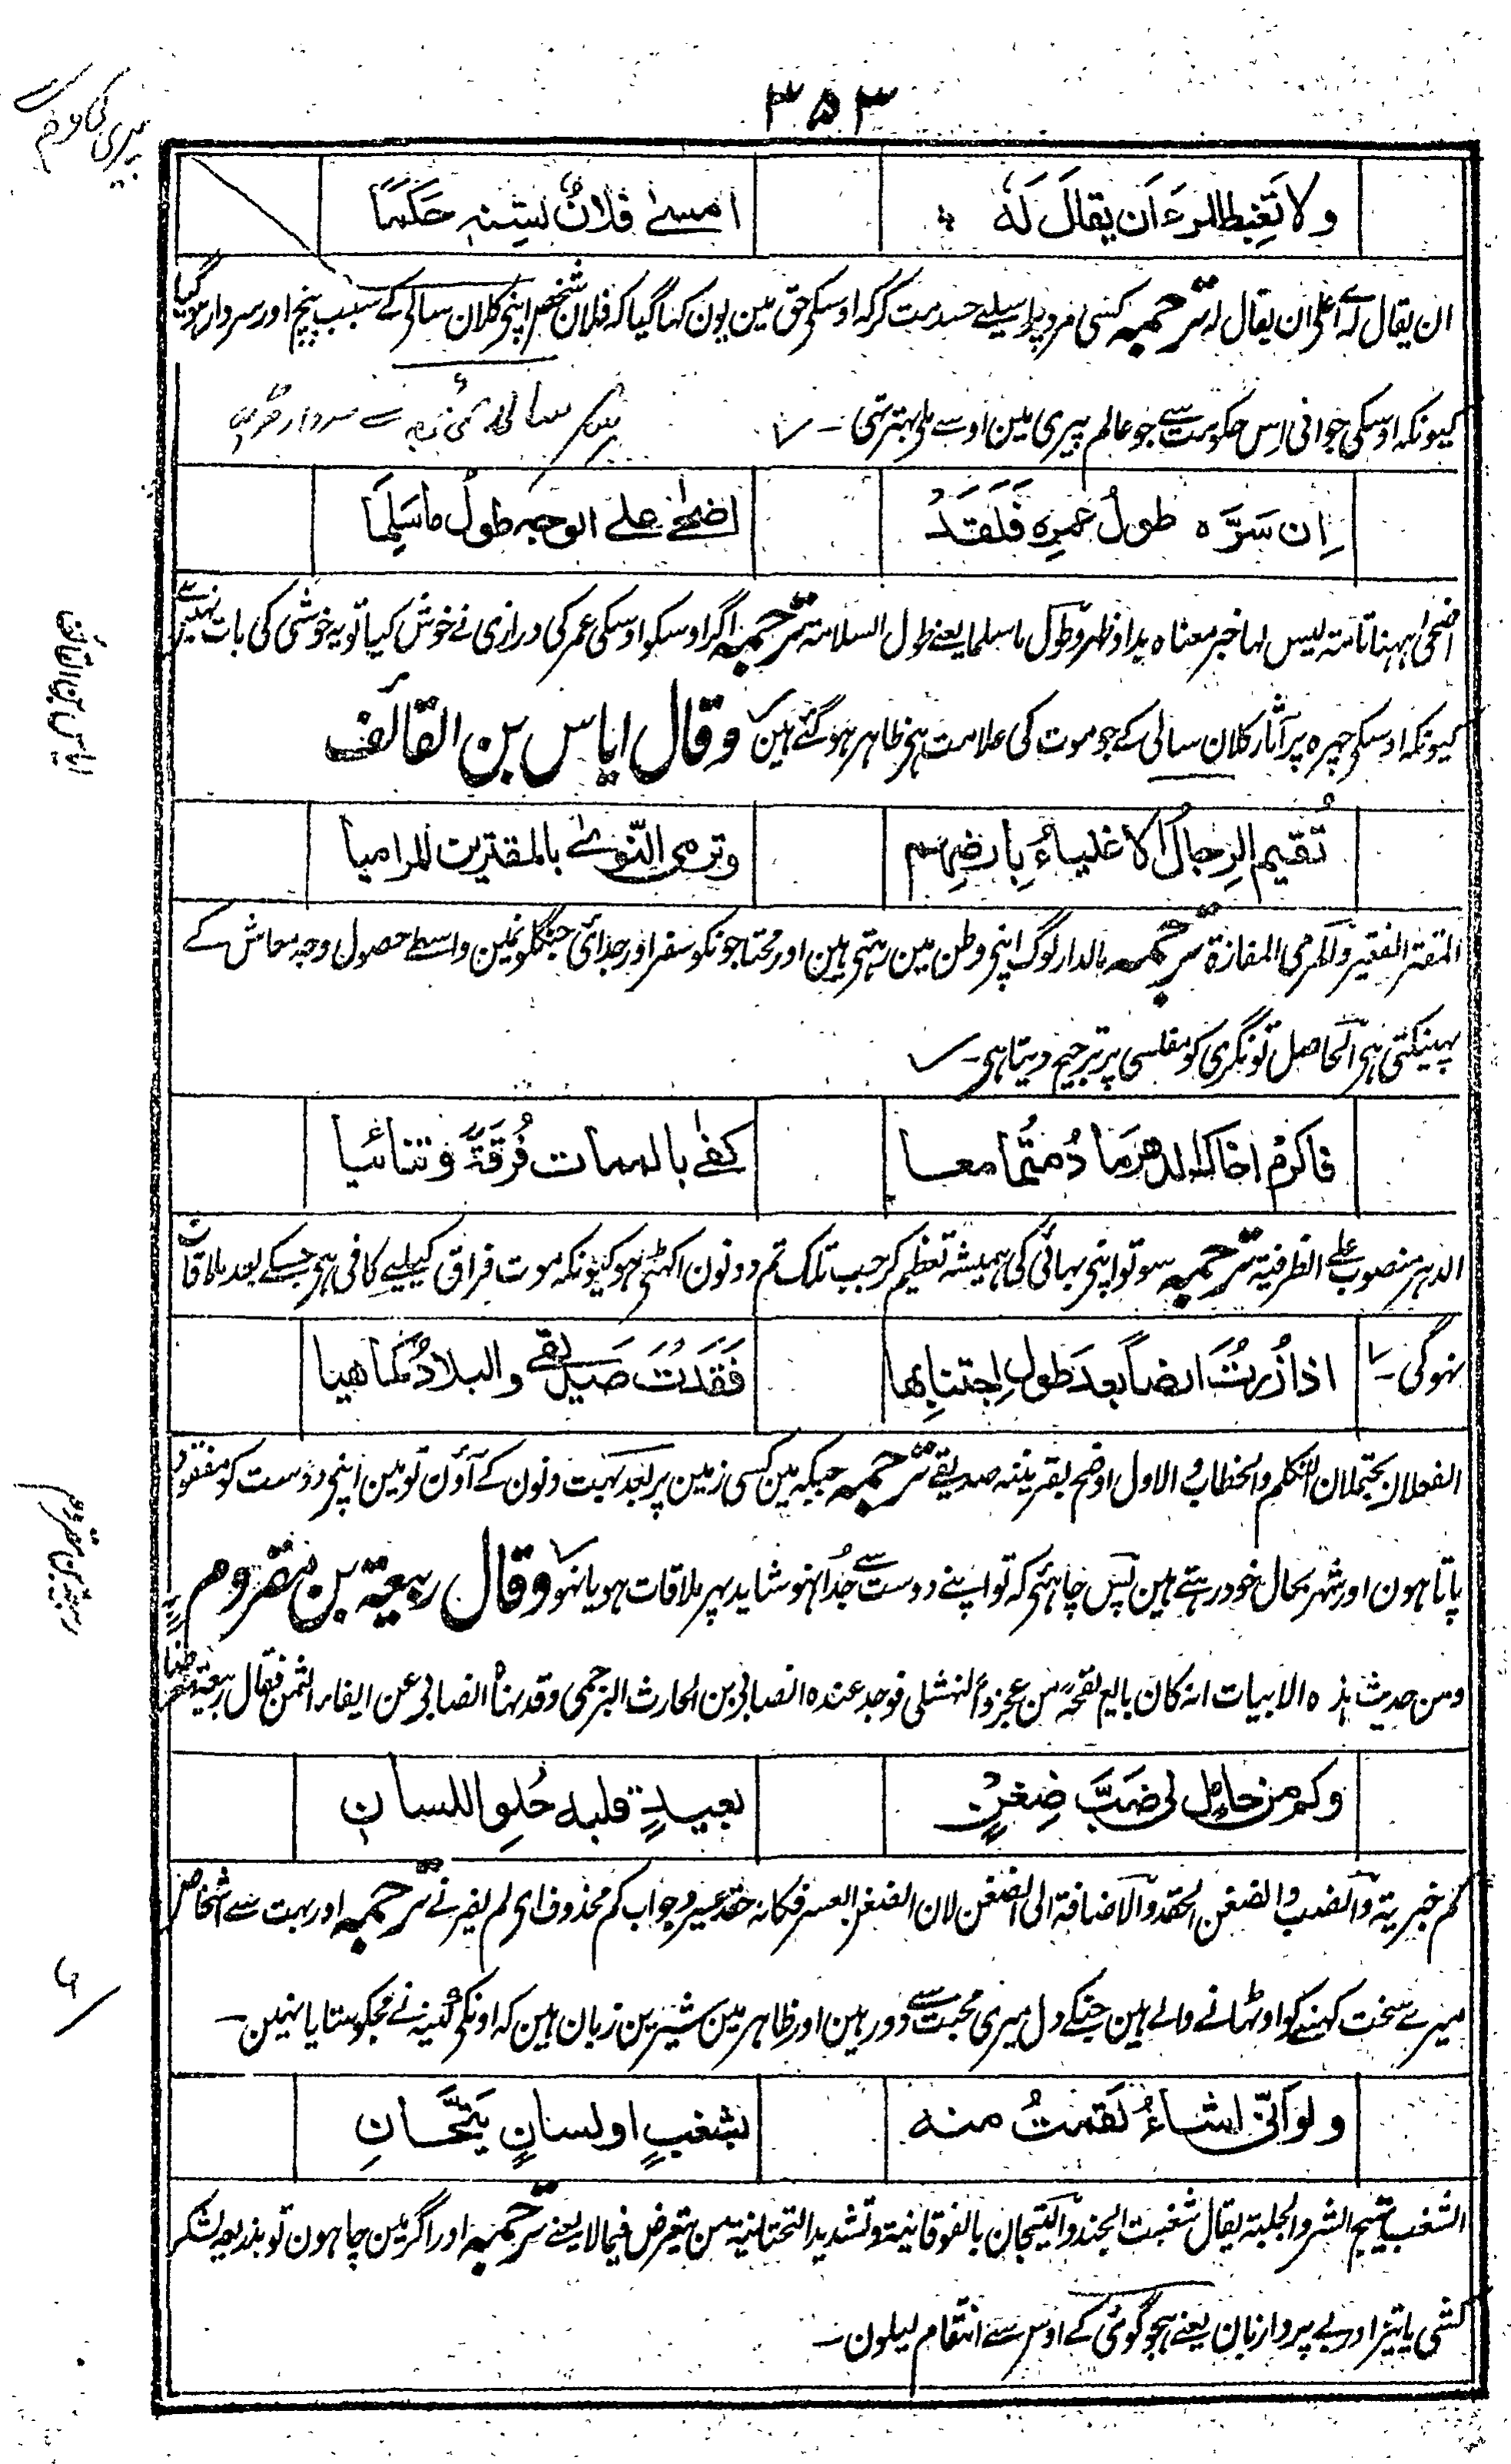 ۳۵۳
ولا تَغِبط المرءَ اَن يقالَ لَهٗ
امسے فلانٌ لسِنہٖ حَکَمًا
ان یقال لہ اے علی ان یقال لہ ترجمہ کسی مرد پر اسلیے حسد مت کر کہ اوسکی حق مین یون کہا گیا کہ فلان شخص اپنی کلان سالی کے سبب پنچ اور سردار ہوگیا
کیونکہ اوسکی جوانی اس حکومت سے جو عالم پیری مین اوسے ملی بہتر تہی ۔
اِن سَرَّہ طولُ عمرِہٖ فَلَقَد
اضحٰے علے الوجہ طولُ ماسَلِمَا
اضحیٰ ہہنا تامۃ لیس لہا خبر معناہ بدا و ظہر و طول ماسلما یعنے طول السلامۃ ترجمہ اگر اوسکو اوسکی عمر کی درازی نے خوش کیا تو یہ خوشی کی بات نہین ہے
کیونکہ اوسکی چہرہ پر آثار کلان سالی کے جو موت کی علامت ہی ظاہر ہوگئے ہین وقال ایاس بن القائف
تُقیم الرِجالُ الاغنیاءُ بِارضِهم
وترمی النّوٰے بالمقترین المرامیا
المقتر الفقیر والمرمی المفازۃ ترجمہ مالدار لوگ اپنی وطن مین رہتی ہین اور محتاجونکو سفر اور جدائی جنگلونمین واسطے حصول وجہ معاش کے
پہینکتی ہی الحاصل تونگری کو مفلسی پر ترجیح دیتا ہی ۔
فاکرِمْ اخاک الدهرَ ما دُمتُما معا
کفٰے بالممات فُرقۃً وتنائیا
الدہر منصوب علے الظرفیۃ ترجمہ سو تو اپنی بہائی کی ہمیشہ تعظیم کر جب تلک تم دونون اکہٹی ہو کیونکہ موت فراق کیلیے کافی ہی جسکے بعد ملاقات
نہوگی ۔
اذا زُرتُ ارضاً بعدَ طولِ اجتنابِها
فَقَدتُ صَدیقے والبلادُ کما هیا
الفعلان یحتملان التکلم والخطاب والاول اوضح بقرینۃ صدیقے ترجمہ جبکہ مین کسی زمین پر بعد بہت دنون کے آؤن تو مین اپنی دوست کو مفقود
پاتا ہون اور شہر بحال خود رہتے ہین پس چاہئی کہ تو اپنے دوست سے جُدا نہو شاید پہر ملاقات ہو یا نہو وقال ربیعۃ بن مقروم
ومن حدیث ہذہ الابیات انہ کان بایع لقحۃ من عجز والنہشلی فوجد عندہ الضابی بن الحارث البرجمی وقد نہاہ الضابی عن ایفاء الثمن فقال ربیعۃ
وکم من حاملٍ لی ضَبَّ ضِغنٍ
بعیدٍ قلبہ حُلوِ اللسان
کم خبریۃ والضب والضغن الحقد والاضافۃ الی الضغن لان الضغن العسر فکانہ حقد عسیر وجواب کم محذوف ای لم یضرنے ترجمہ اور بہت سے اشخاص
میرے سخت کہنہ کو اوٹہانے والے ہین جنکے دل میری محبت سے دور ہین اور ظاہر مین شیرین زبان ہین کہ اونکی کینہ نے مجکو ستایا نہین ۔
ولوانّی اشاءُ نَقَمتُ منہ
بشغبٍ اولسانٍ یَتَّحَانِ
الشغب تہیج الشر والجلبۃ یقال شغبت الجند والتیحان بالفوقانیۃ وتشدید التحتانیۃ من یتعرض فیما لا یعنے ترجمہ اور اگر مین چاہون تو بذریعہ لشکر
کشی یا تیز اور بے پروا زبان یعنے ہجو گوئی کے اوس سے انتقام لیلون ۔
ایاس بن القائف
ربیعہ بن مقروم